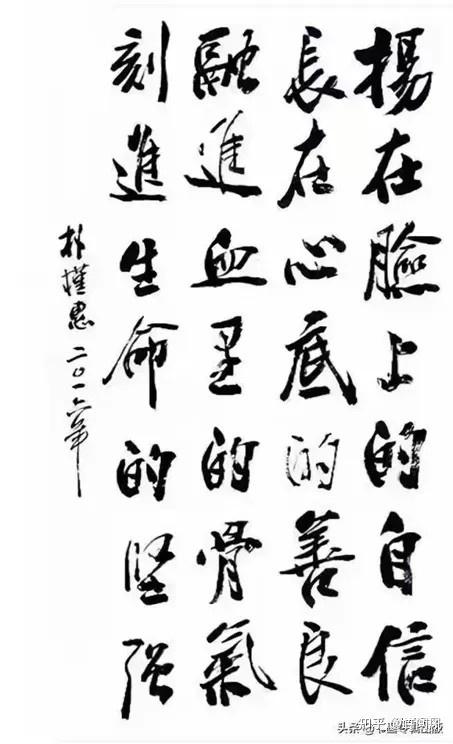 揚在臉上的自信
長在心底的善良
融進血里的骨氣
刻進生命的堅强
朴槿惠 二〇一六年
知乎
头条